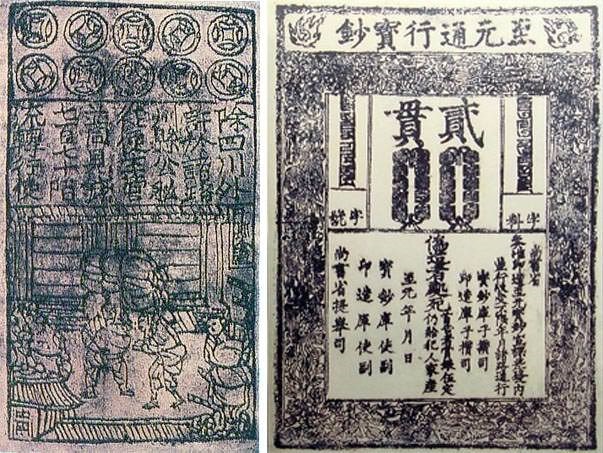 除四川外
許於諸路
州縣公私
從便主管
並同見錢
七百七十陌
流轉行使
至元通行寶鈔
貳貫
字料
字號
尚書省
奏准印造至元寶鈔宣課差役內
並行收受不限年月諸路通行
寶鈔庫子攢司
印造庫子攢司
偽造者處死
首告者賞銀伍定
仍給犯人家產
至元年月日
寶鈔庫使副
印造庫使副
尚書省提舉司